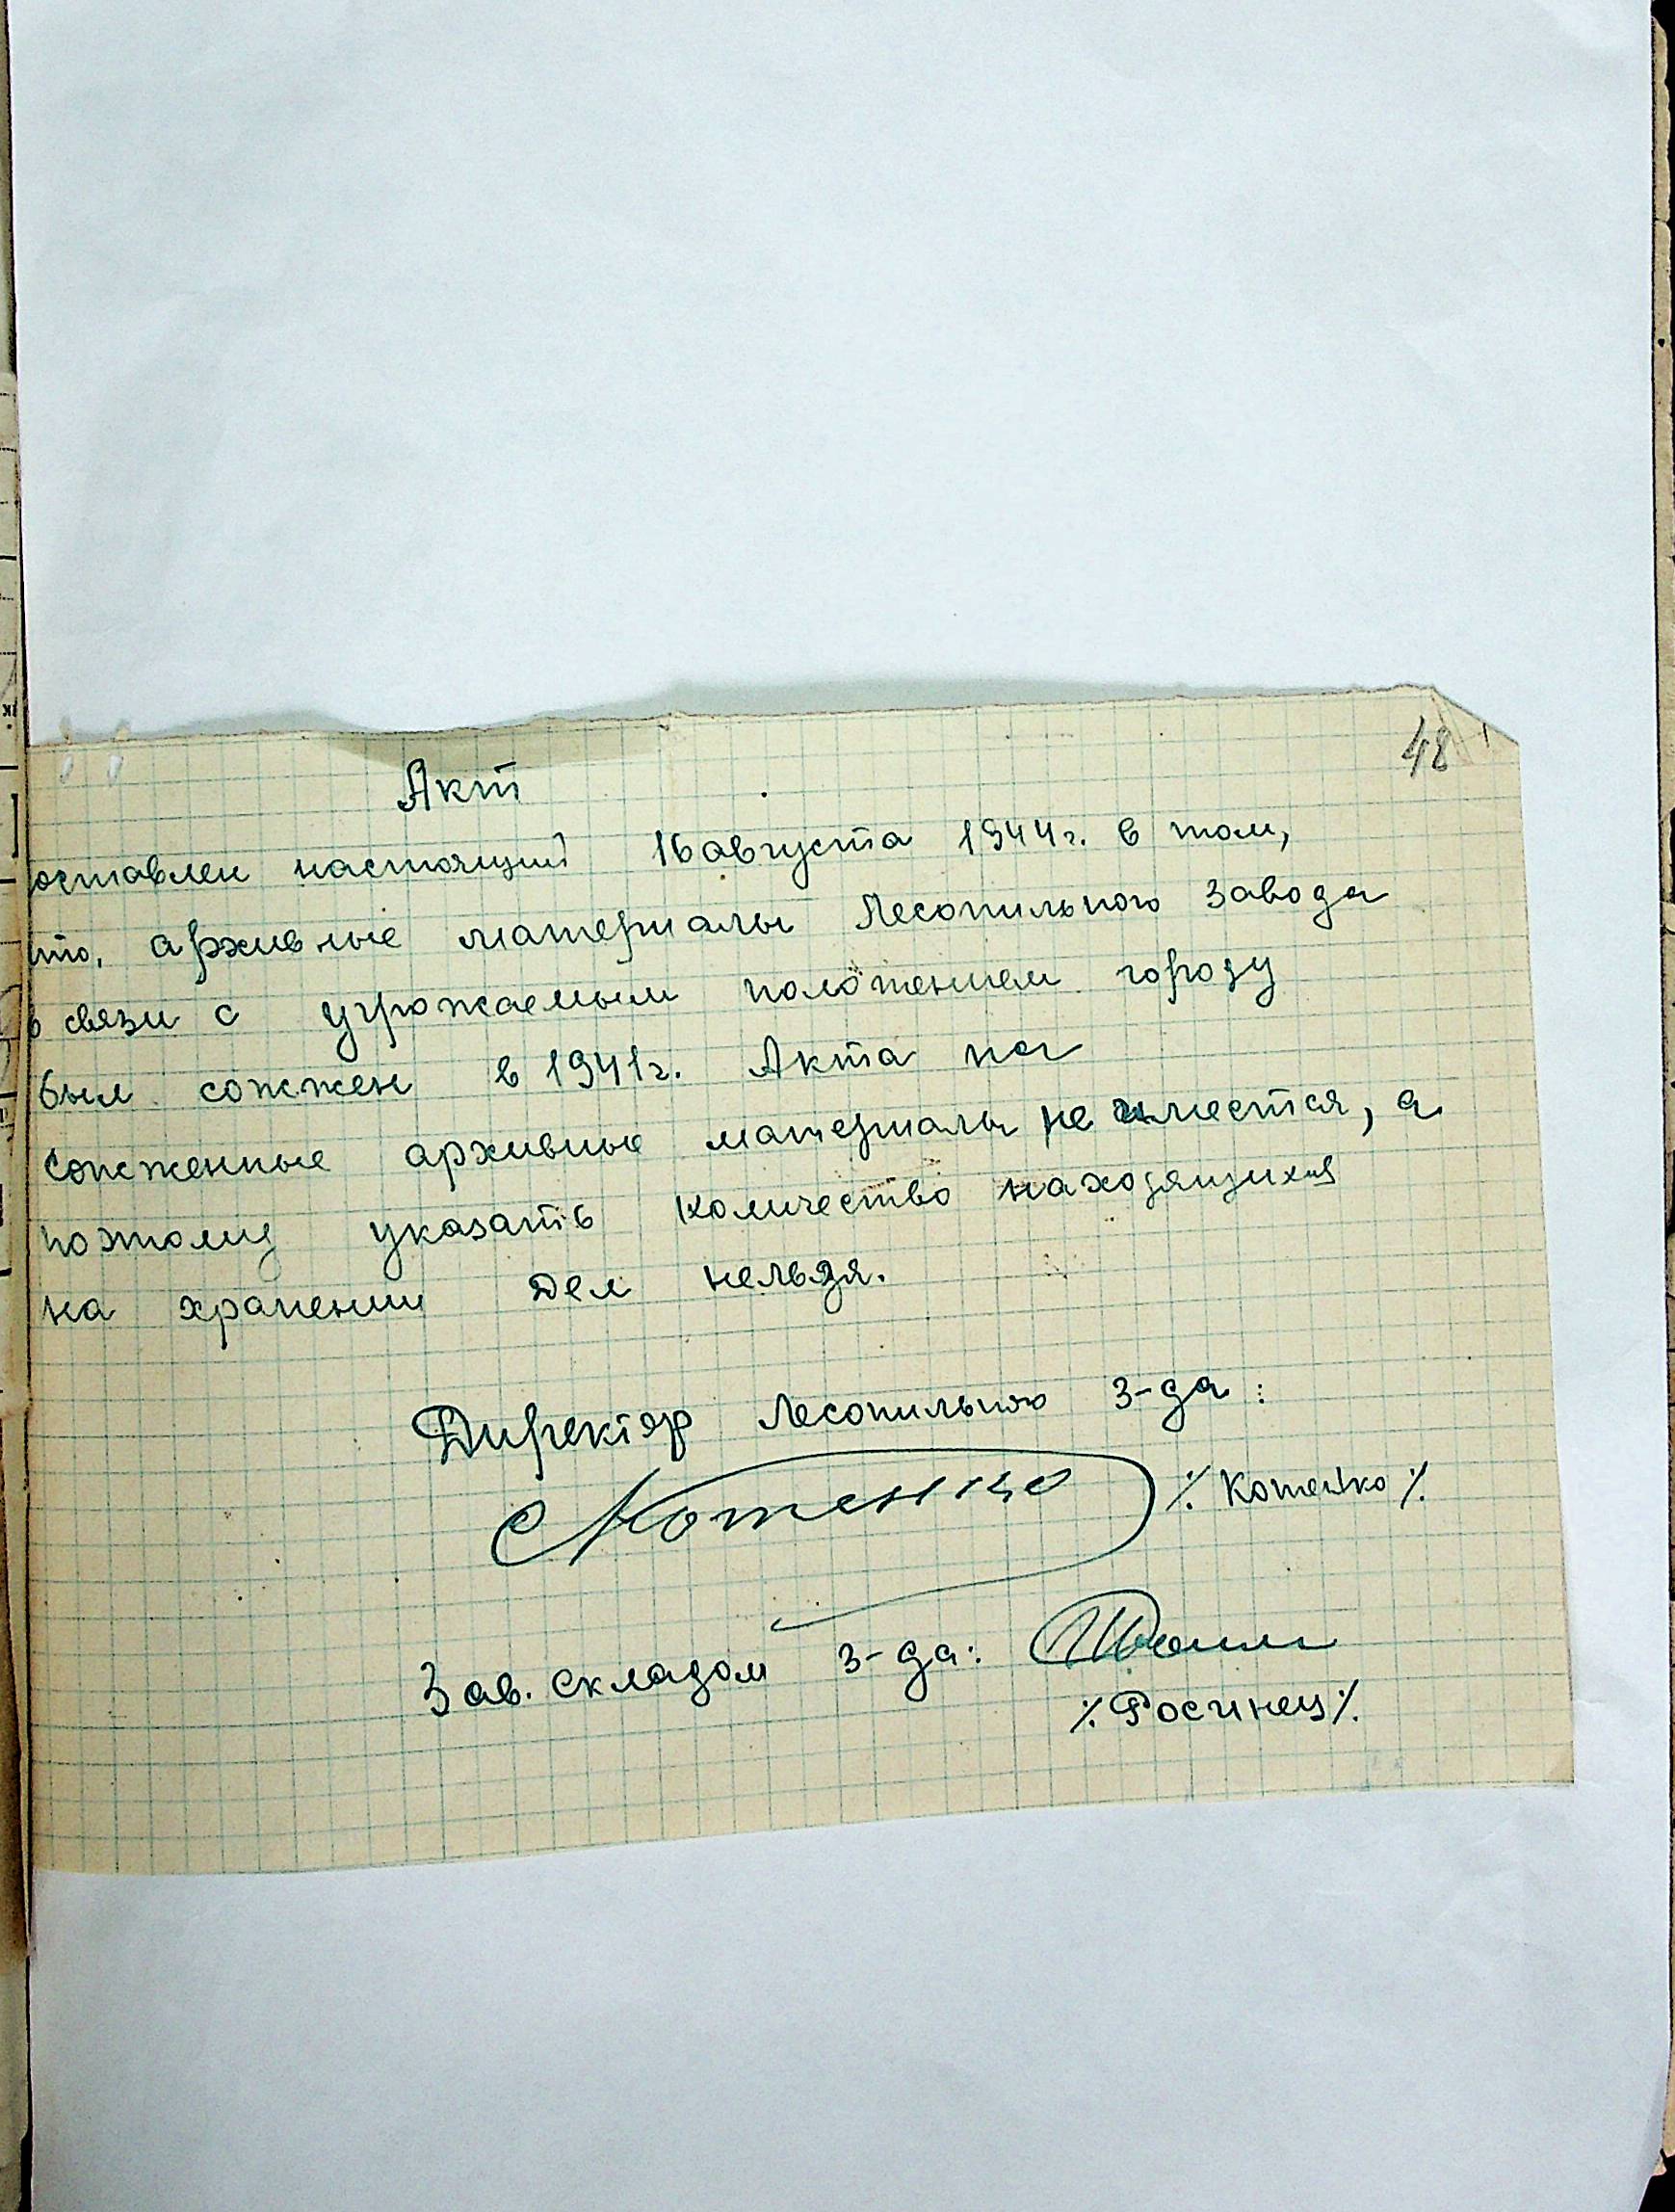 48
Акт
оставлен настоящий 16 августа 1944г. в том,
что, архивные материалы Лесопильного Завода
в связи с угрожаемым положением городу
был сожжен в 1941г. Акта на
сожженные архивные материалы не имеется, а
поэтому указать количество находящихся
на хранении дел нельзя.
Директор Лесопильного з-да:
Котенко ٪ Котенко ٪
Зав. складом з-да:
٪ Росинец ٪